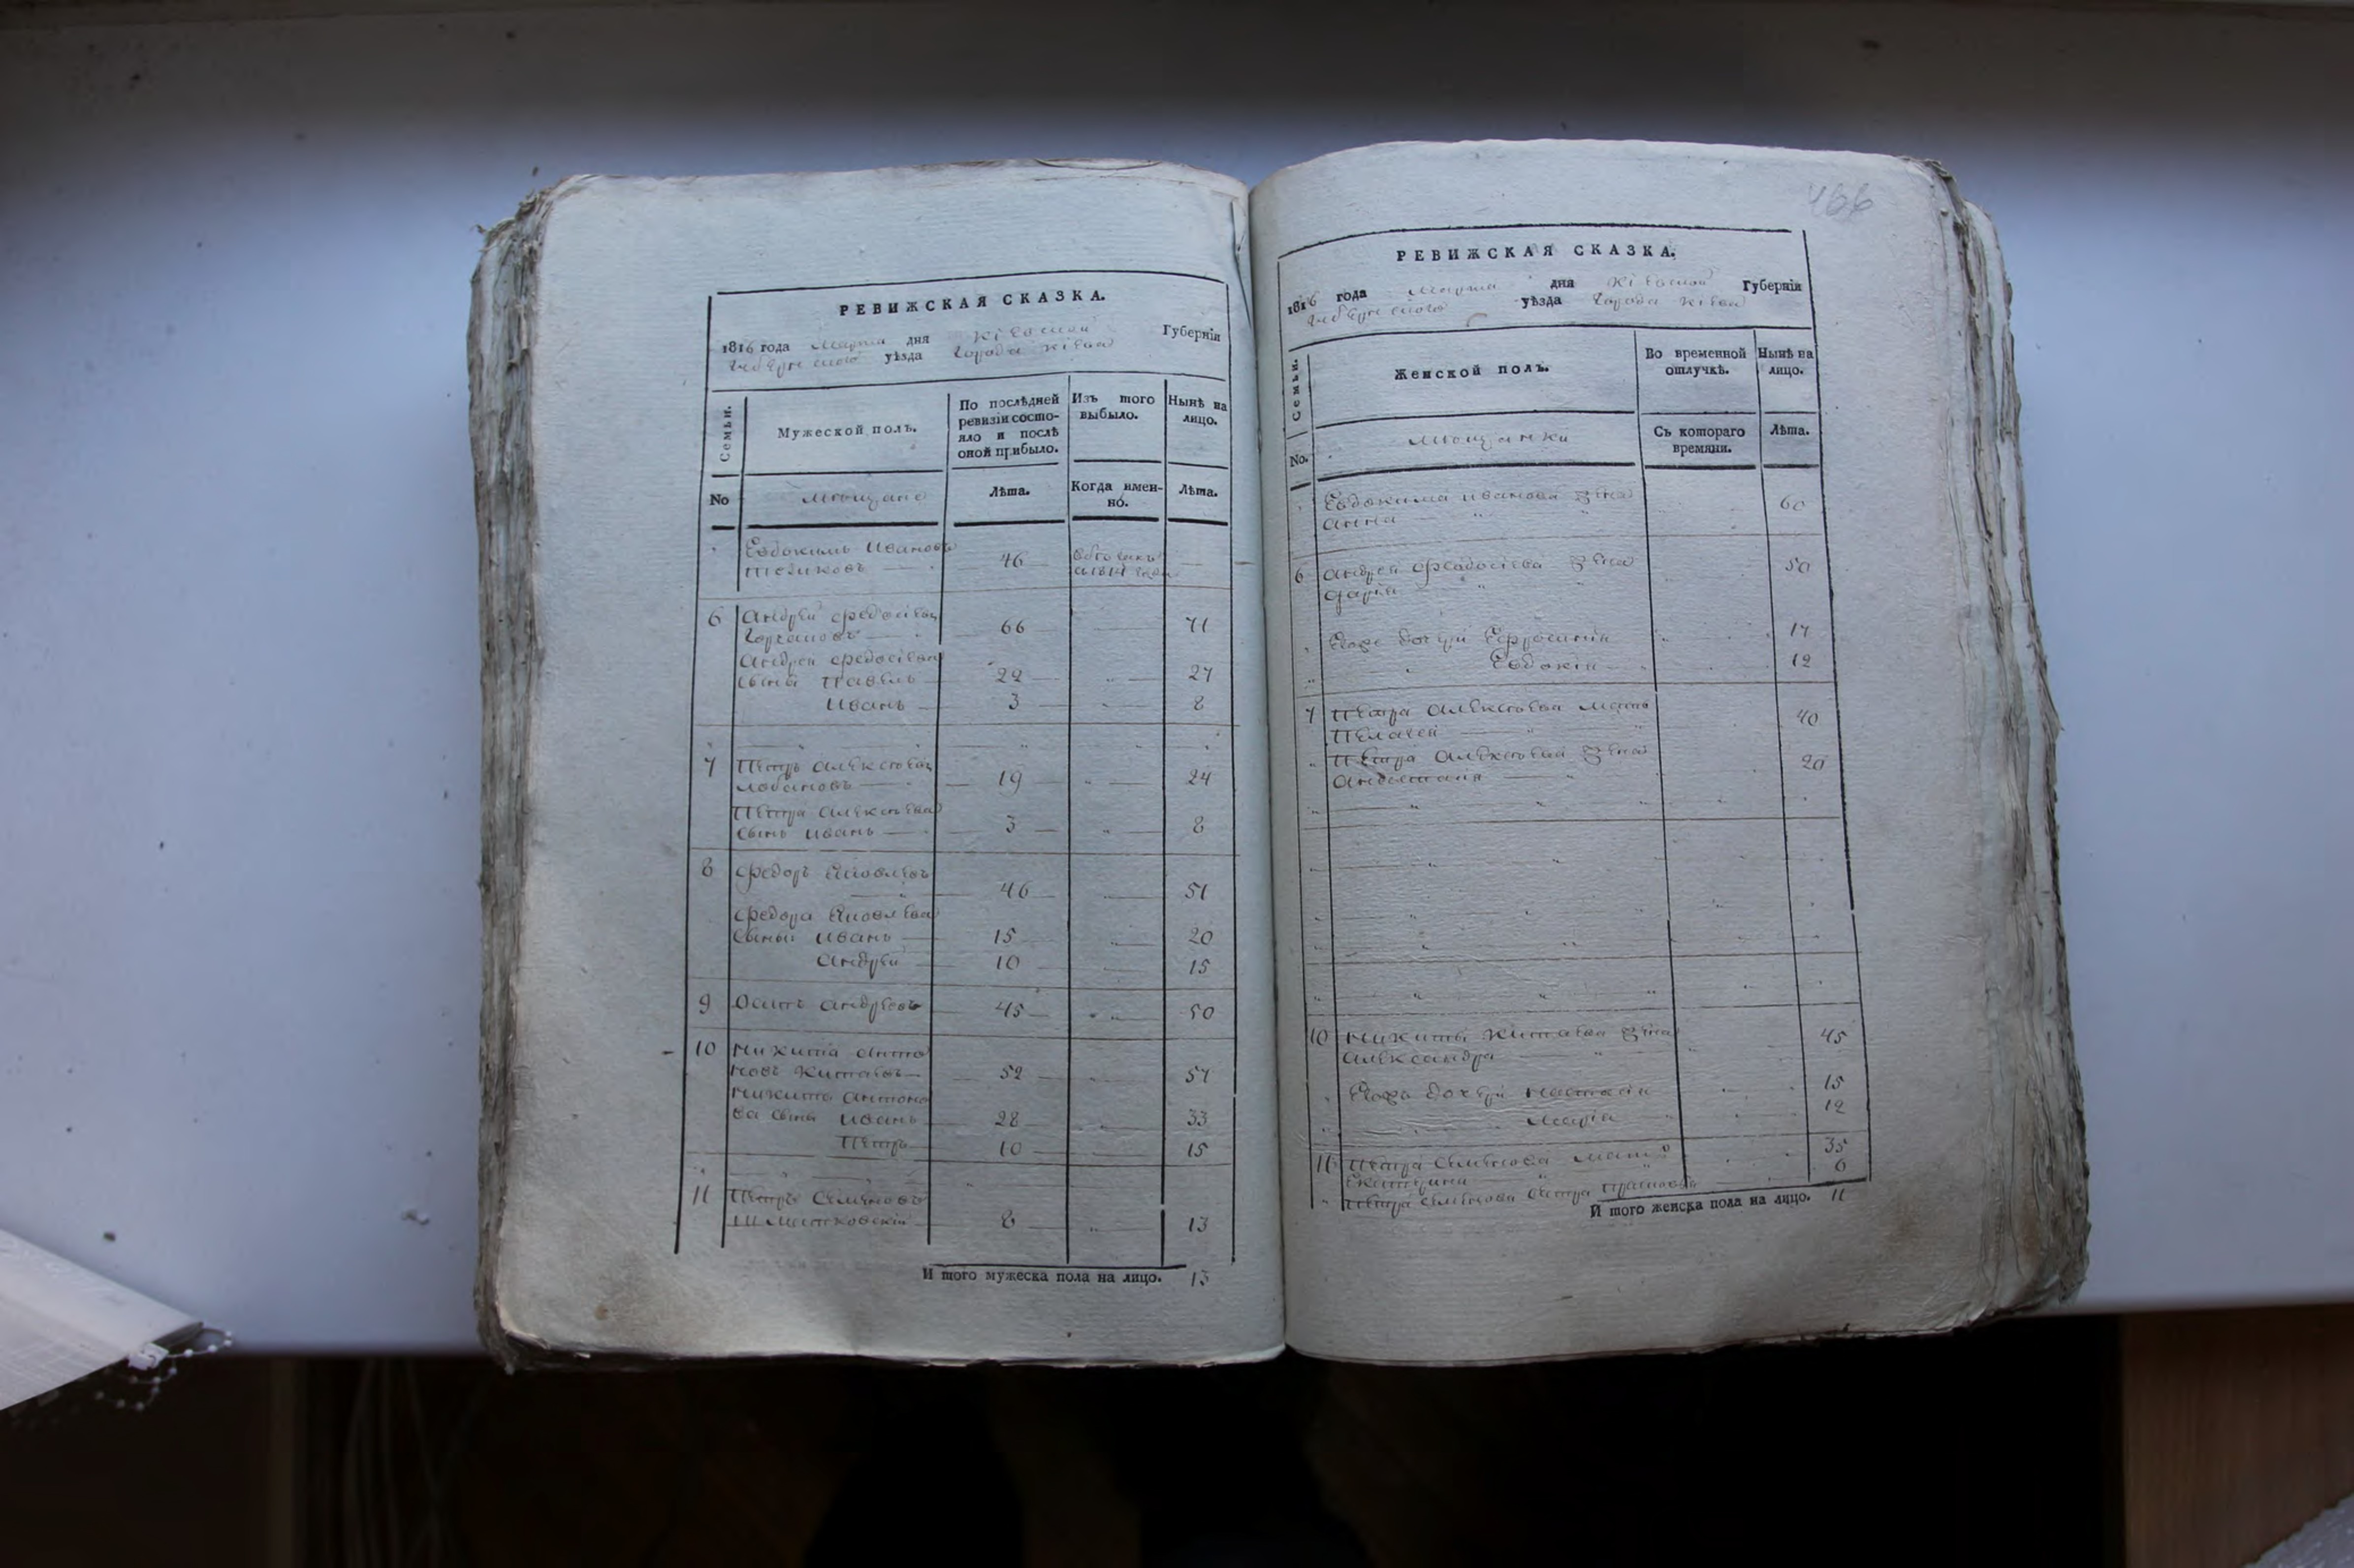 РЕВИЖСКАЯ СКАЗКА.
1816 года Марта дня Кіевской Губерніи
уѣзда Города Кіева
Семьи.
Мужеской полъ.
По послѣдней ревизіи состояло и послѣ оной прибыло.
Изъ того выбыло.
Нынѣ на лицо.
No
мѣщане
Лѣта.
Когда именно.
Лѣта.
Евдокимъ Ивановъ
46
6 Андрей Федосіевъ
66 71
Андрея Федосіева
сына Павелъ 22 27
Иванъ 3 8
7 Петръ Алексѣевъ
Лобановъ 19 24
Петра Алексѣева
сынъ Иванъ 3 8
8 Федоръ Яковлевъ
46 51
Федора Яковлева
сыны: Иванъ 15 20
Андрей 10 15
9 Осипъ Андреевъ 45 50
10 Никита Анто
новъ Китаевъ 52 57
Никиты Антоно
ва сынъ Иванъ 28 33
Петръ 10 15
11 Петръ Семеновъ
8 13
И того мужеска пола на лицо. 13
466
РЕВИЖСКАЯ СКАЗКА.
1816 года Марта дня Кіевской Губерніи
уѣзда Города Кіева
Семьи.
Женской полъ.
Во временной отлучкѣ.
Нынѣ на лицо.
No.
мѣщанки
Съ котораго времяни.
Лѣта.
Евдокима Иванова жена
Анна 60
6 Андрея Федосіева жена
Дарья 50
Егоже дочери Ефросинія 17
Евдокія 12
7 Петра Алексѣева мать
Пелагея 40
Петра Алексѣева жена
20
10 Никиты Китаева жена
Александра 45
Егожъ дочери Настасія 15
Марія 12
11 Петра Семенова мать 35
Екатерина 6
Петра Семенова сестра
И того женска пола на лицо. 11